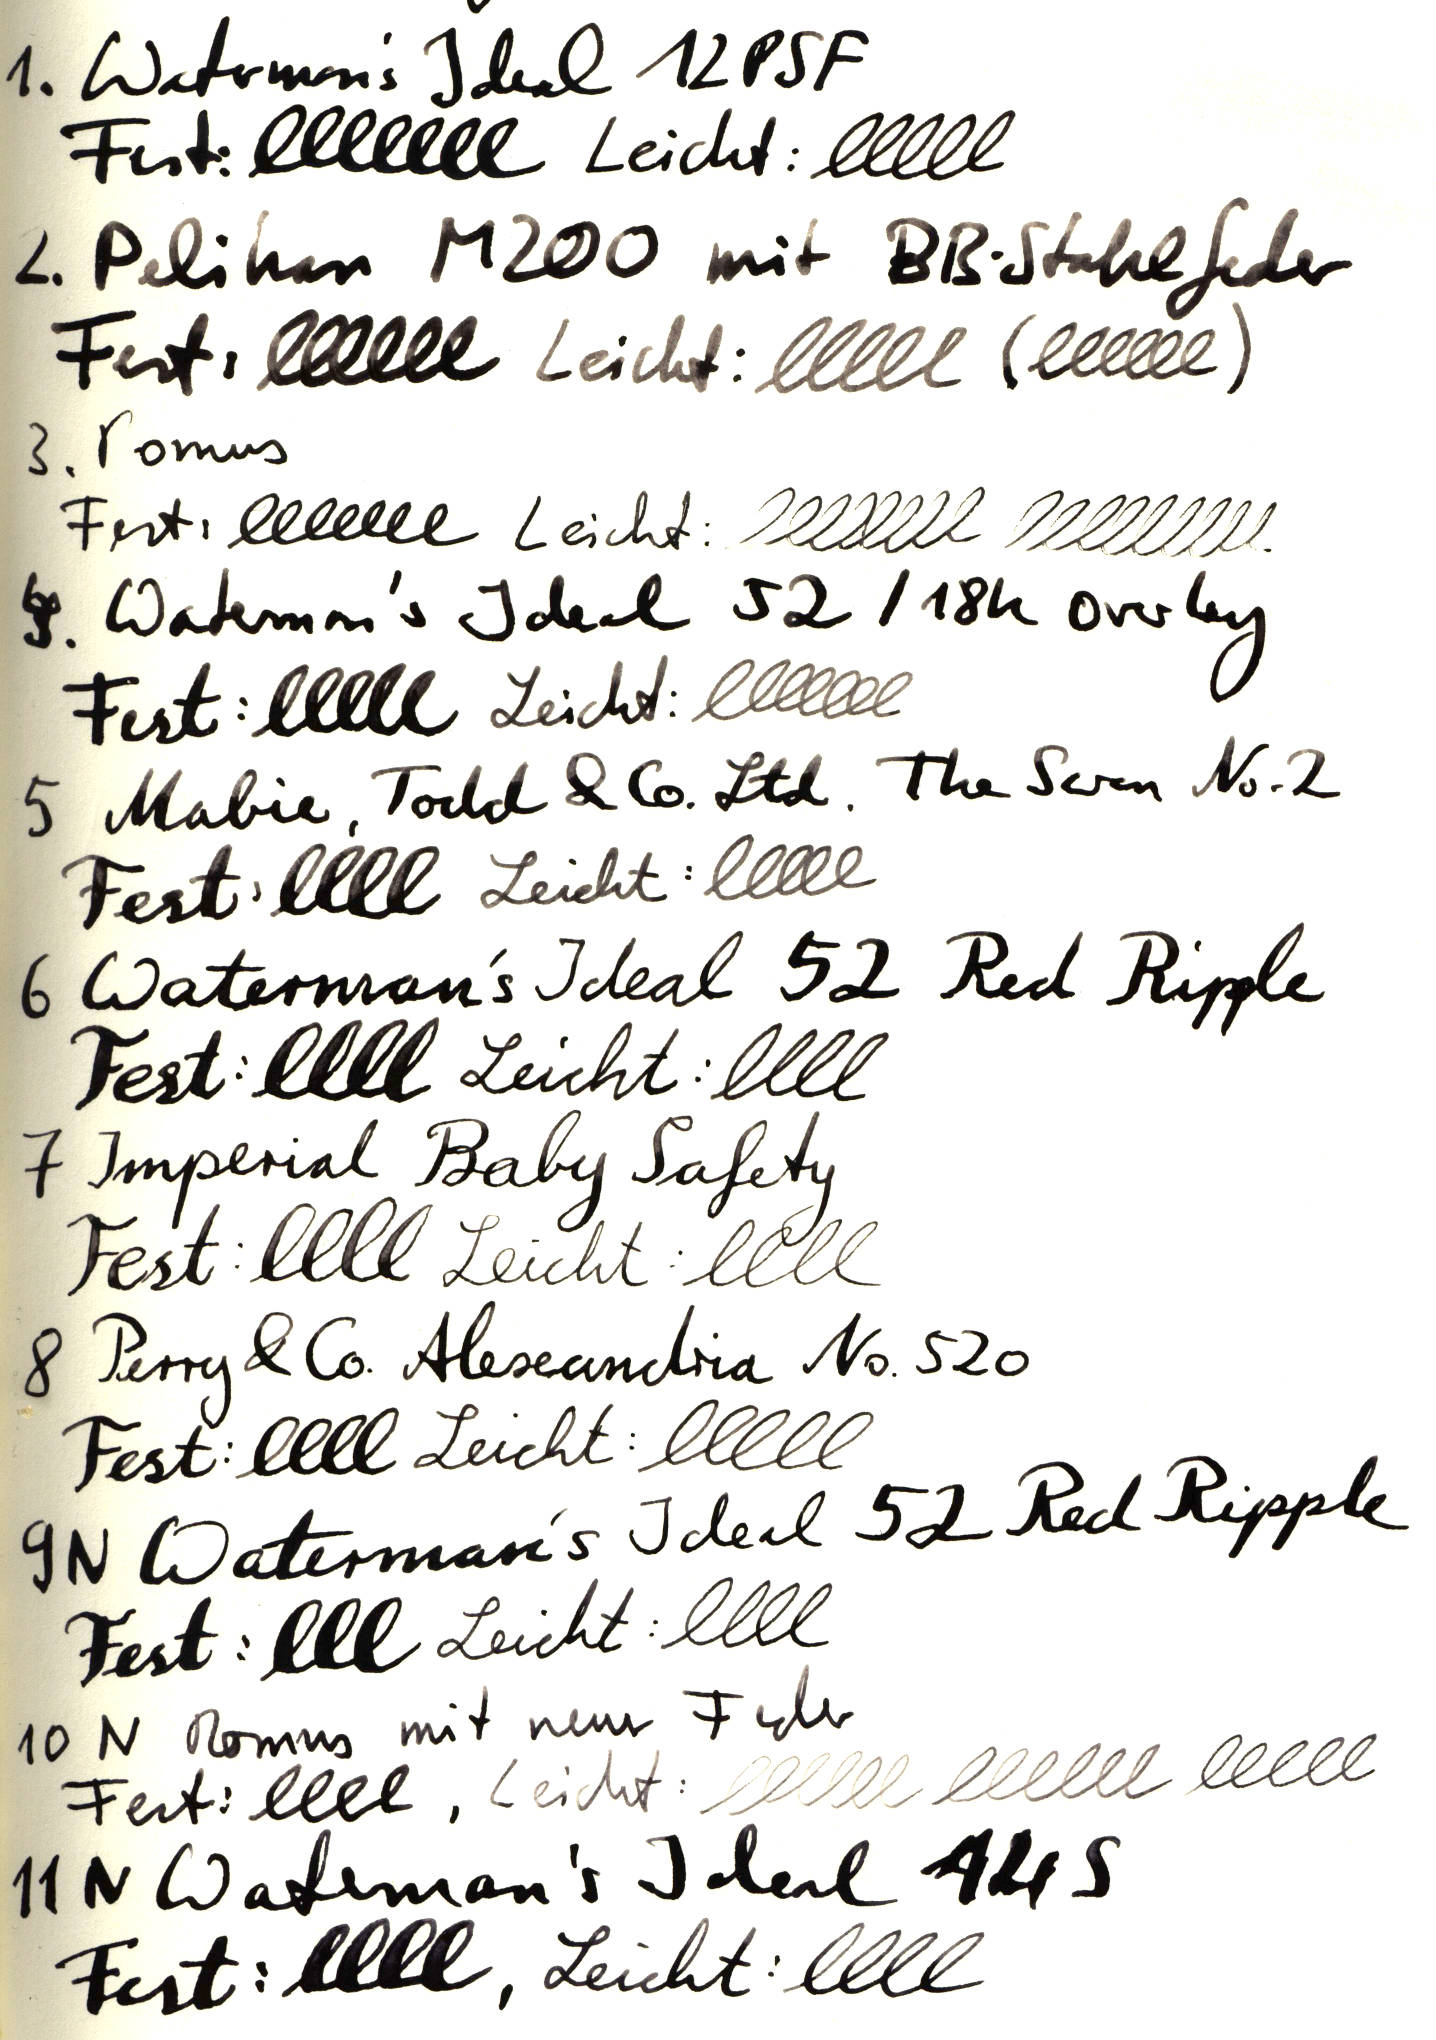 1. Waterman's Ideal 12PSF
Fest: lllllll Leicht: lllll
2. Pelikan M200 mit BB-Stahlfeder
Fest: llllll Leicht: lllll (llllll)
3. Romus
Fest: lllllll Leicht: llllllll lllllllll
4. Waterman's Ideal 52 / 18k Overlay
Fest: lllll Leicht: llllll
5 Mabie, Todd & Co. Ltd. The Swan No. 2
Fest: llll Leicht: lllll
6 Waterman's Ideal 52 Red Ripple
Fest: llll Leicht: llll
7 Imperial Baby Safety
Fest: llll Leicht: llll
8 Perry & Co. Alexandria No. 520
Fest: llll Leicht: lllll
9N Waterman's Ideal 52 Red Ripple
Fest: lll Leicht: llll
10 N Romus mit neuer Feder
Fest: llll, Leicht: llllll llllll lllll
11 N Waterman's Ideal 44S
Fest: llll, Leicht: llll